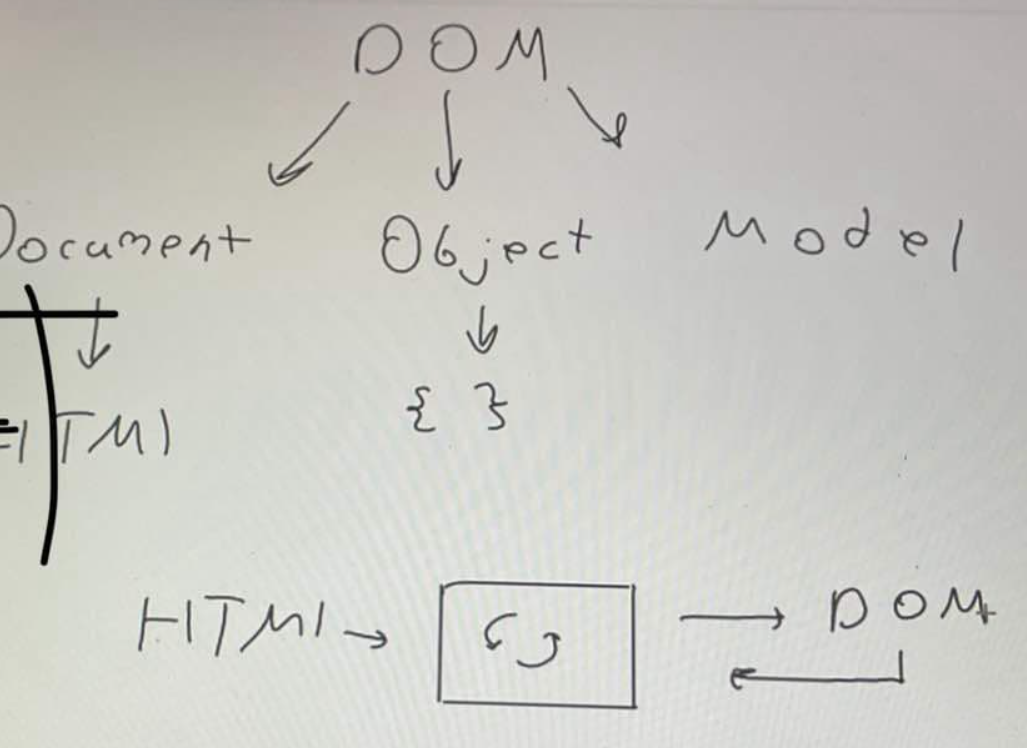 DOM
Document Object Model
HTMl { }
HTMl DOM